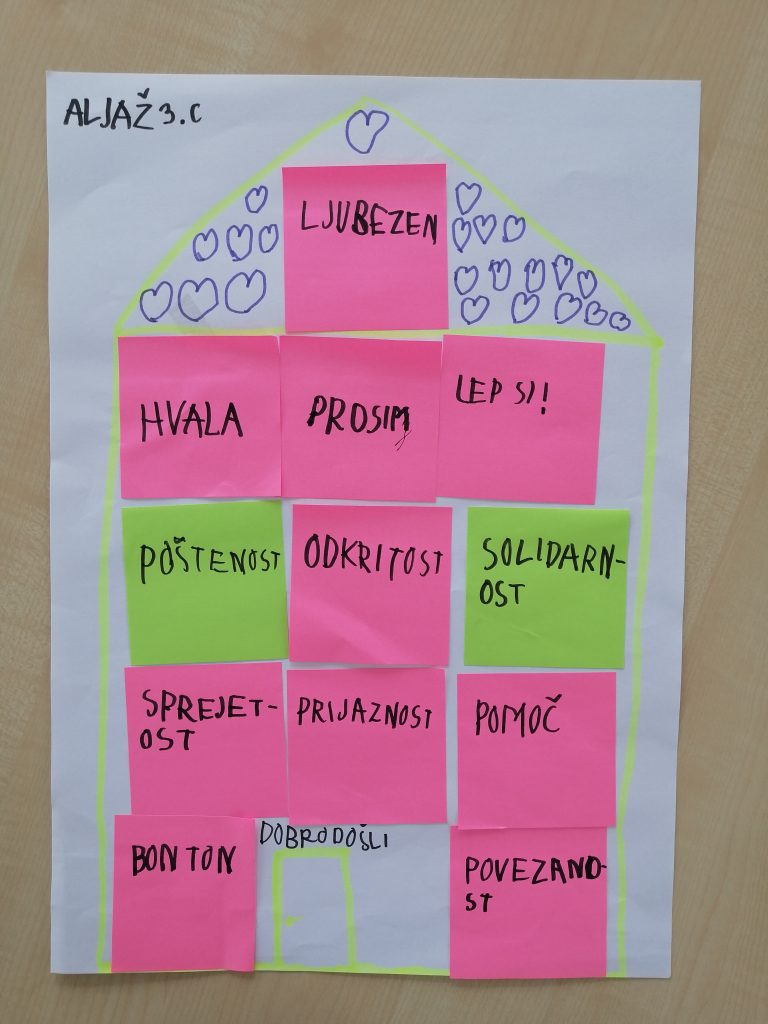 ALJAŽ 3.C
LJUBEZEN
HVALA
PROSIM
LEP SI!
POŠTENOST
ODKRITOST
SOLIDARN-
OST
SPREJET-
OST
PRIJAZNOST
POMOČ
BONTON
DOBRODOŠLI
POVEZANO-
ST